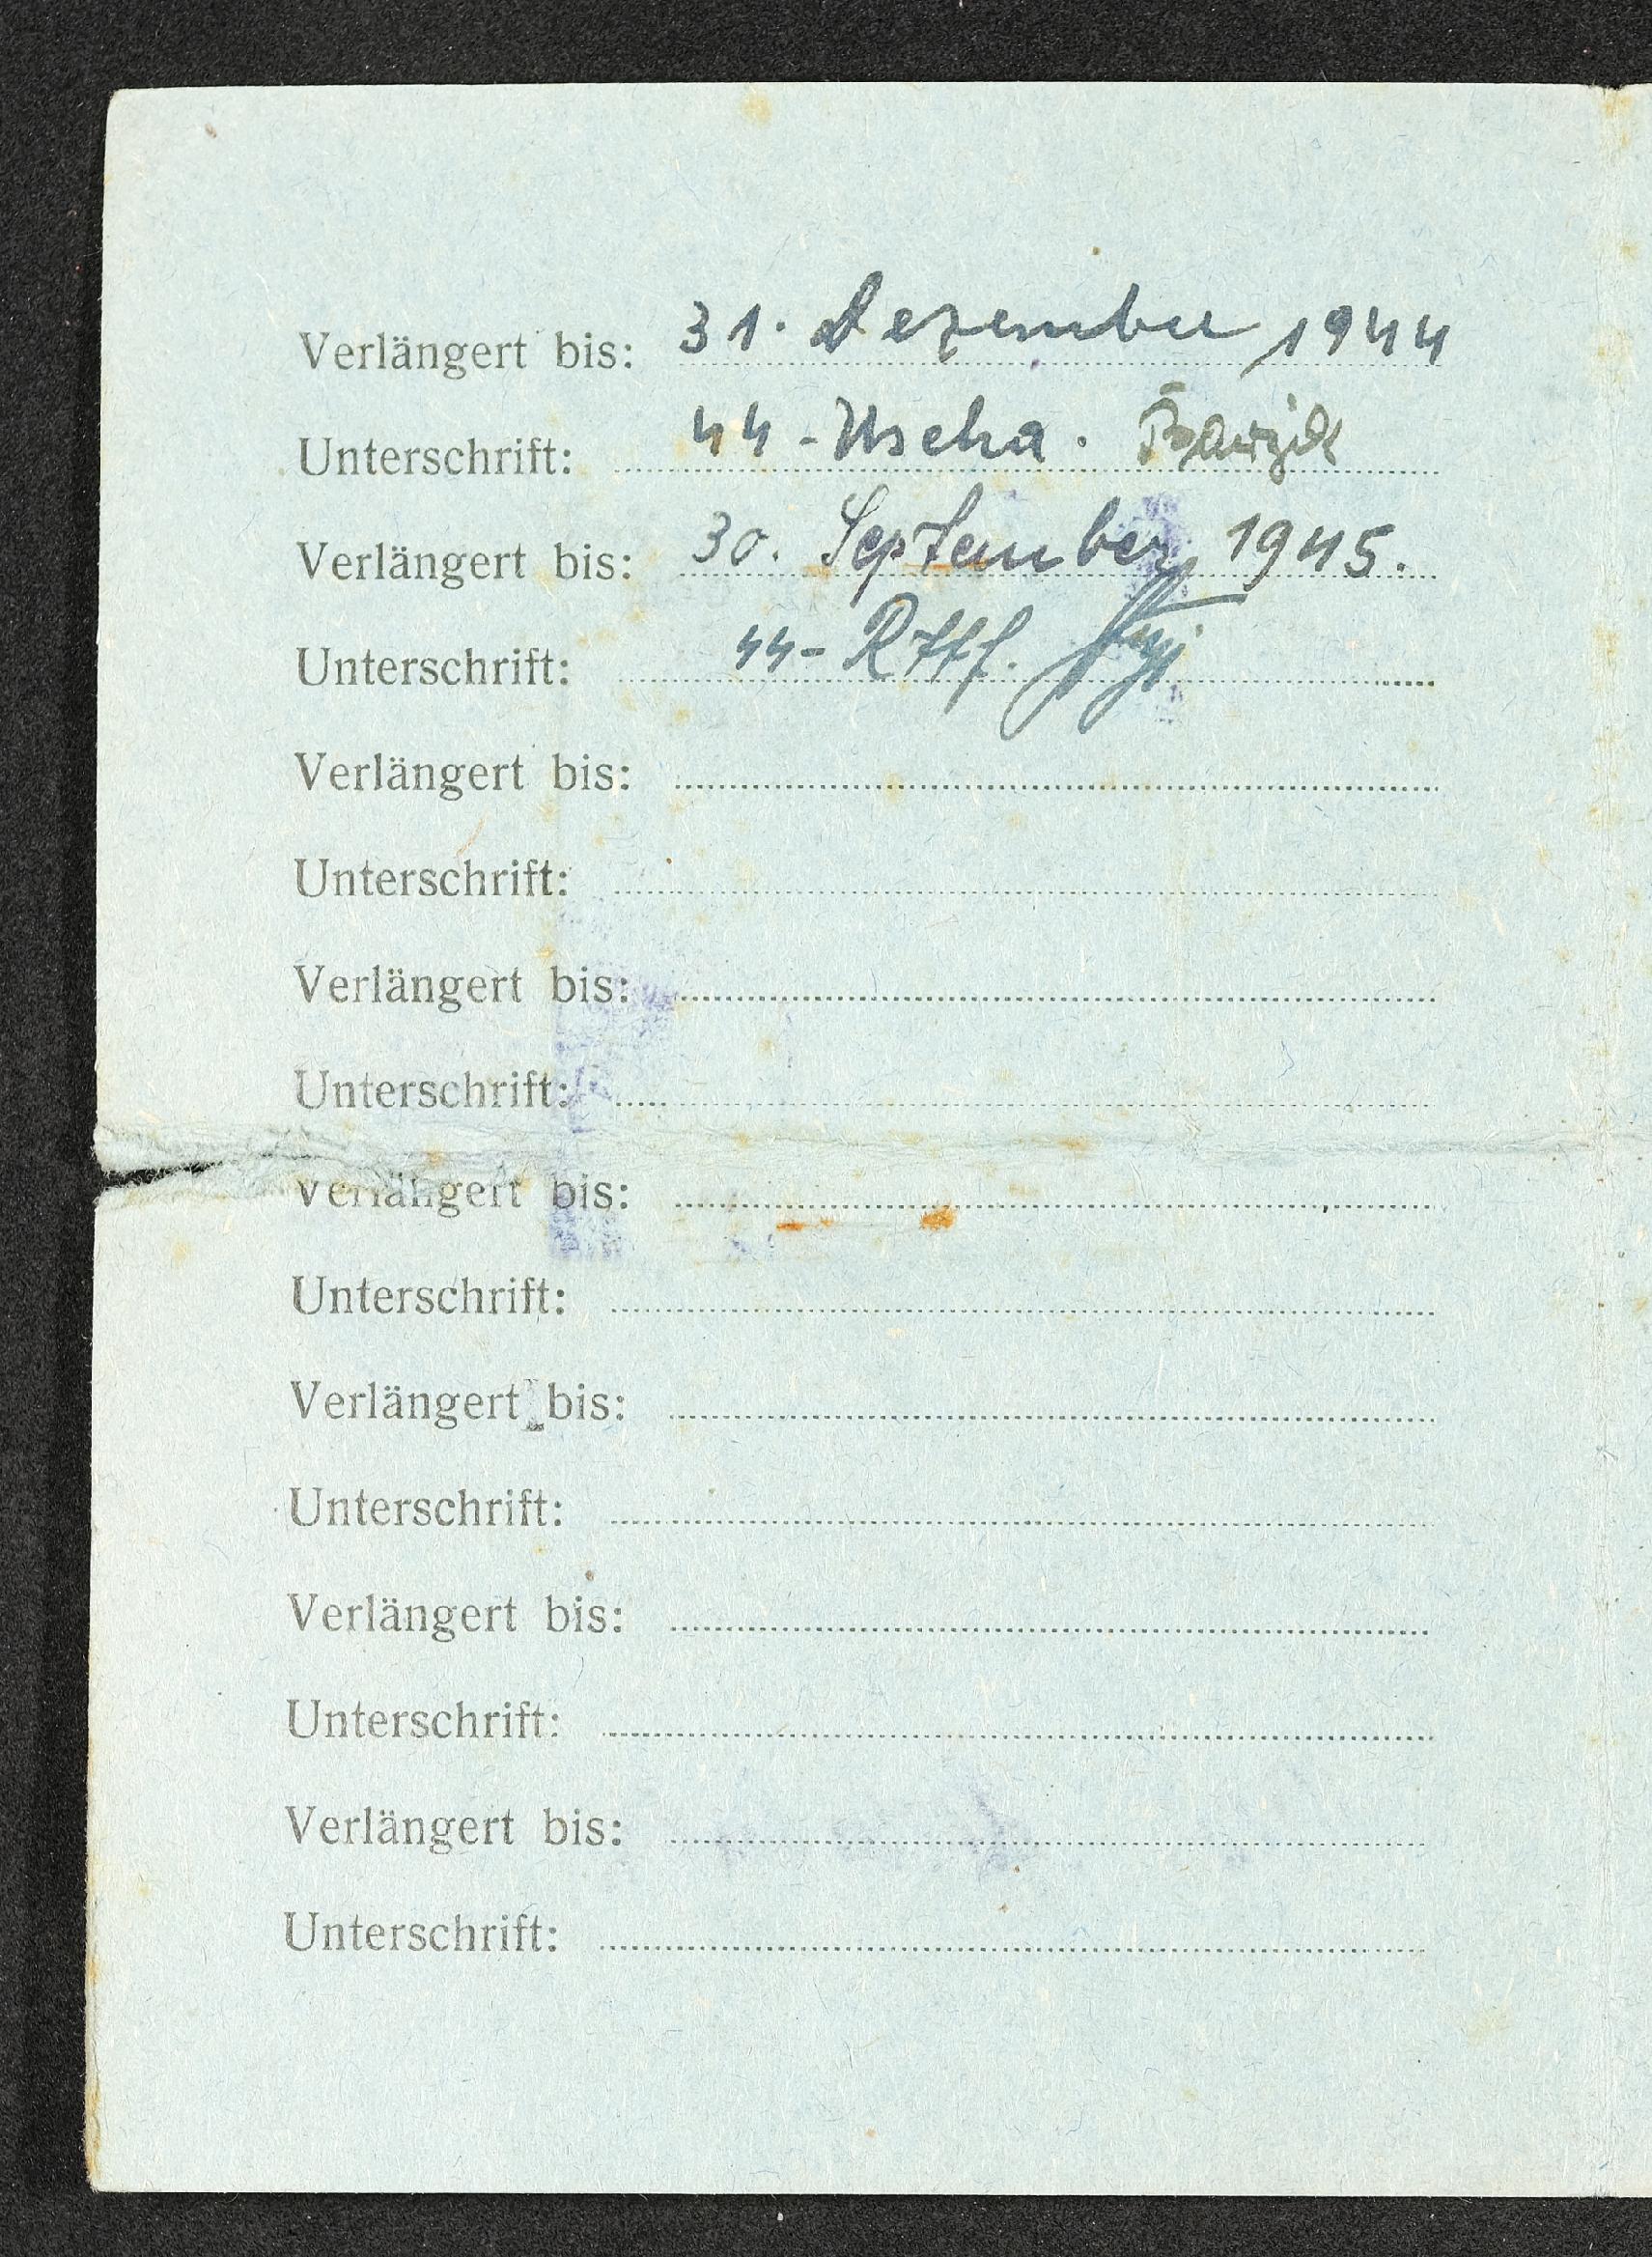 Verlängert bis: 31. Dezember 1944
Unterschrift: SS-Uscha.
Verlängert bis: 30. September 1945.
Unterschrift: SS-Rttf.
Verlängert bis:
Unterschrift:
Verlängert bis:
Unterschrift:
Verlängert bis:
Unterschrift:
Verlängert bis:
Unterschrift:
Verlängert bis:
Unterschrift:
Verlängert bis:
Unterschrift: